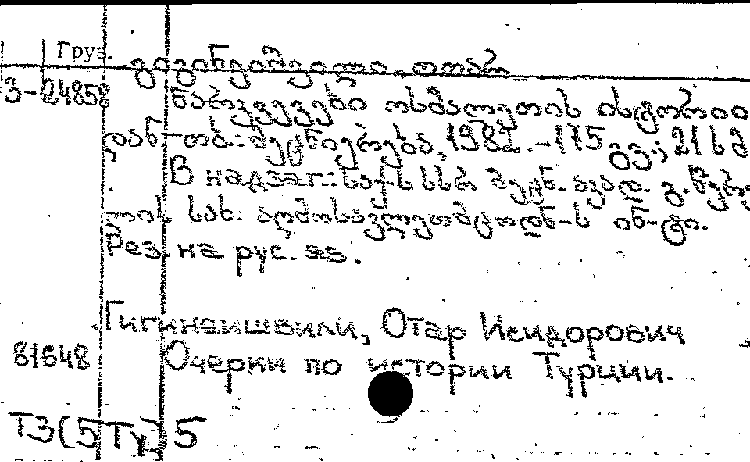 Груз.
გიგინეიშვილი ოთარ
З-24858
ნარკვევები ოსმალეთის ისტორიი
დან-თბ.: მეცნიერება, 1982.-175 გვ.; 21 სმ
В надзаг.: საქ. სსრ მეცნ. აკად. გ. წერე
ლის სახ. აღმოსავლეთმცოდნ-ს ინ-ტი.
Рез. на рус. яз.
Гигинеишвили, Отар Исидорович
81648 Очерки по истории Турции.
Т3(5Ту)5